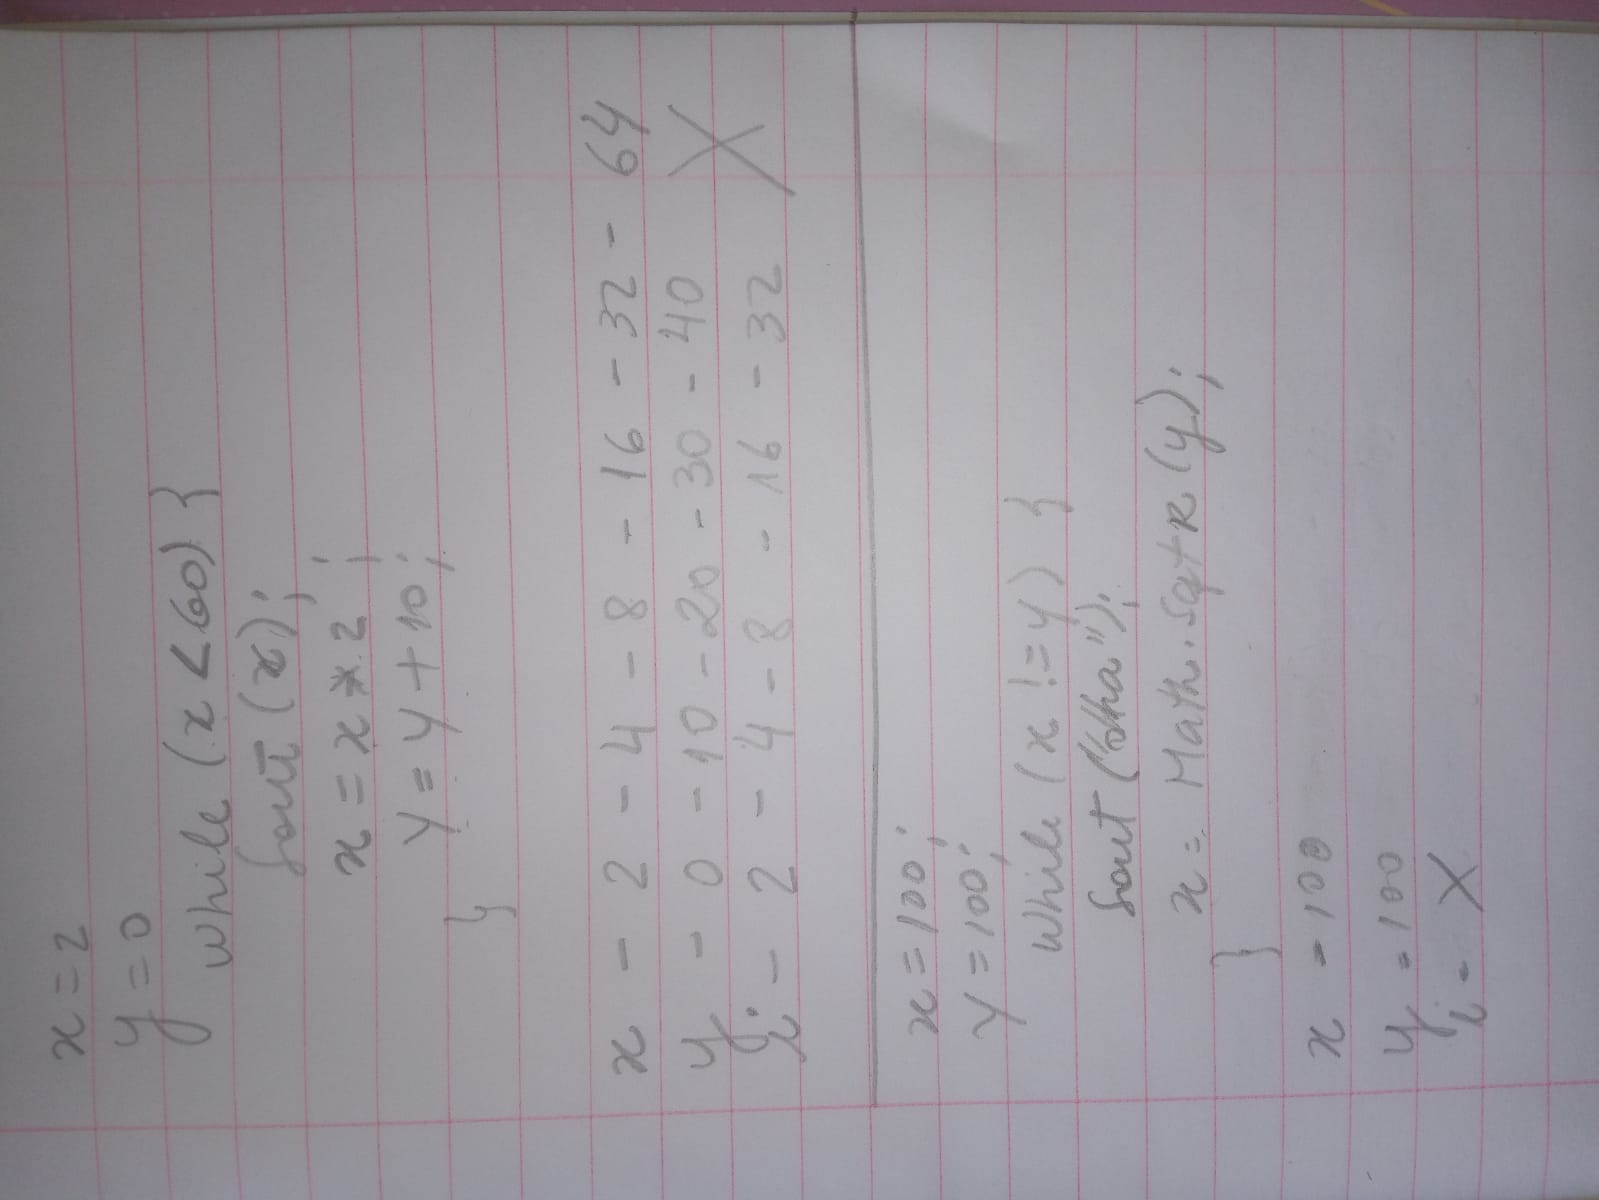 x = 2
y = 0
while (x < 60) }
Sout (x);
x = x * 2 ;
y = y + 10;
}
x - 2 - 4 - 8 - 16 - 32 - 64
y - 0 - 10 - 20 - 30 - 40 X
i - 2 - 4 - 8 - 16 - 32
x = 100;
y = 100;
while (x != y) }
Sout ("olha");
x = Math.SqtR (y);
}
x - 100
y - 100
i - X